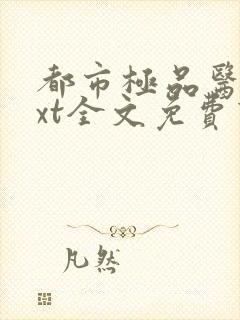 都市極品醫
xt全文免費
凡然